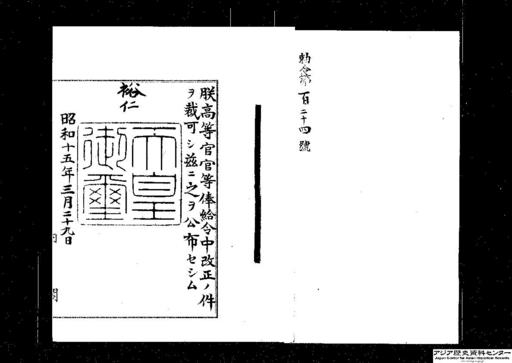 勅令第百二十四號
朕高等官官等俸給令中改正ノ件
ヲ裁可シ茲ニ之ヲ公布セシム
裕仁
天皇御璽
昭和十五年三月二十九日
アジア歴史資料センター
Japan Center for Asian Historical Records